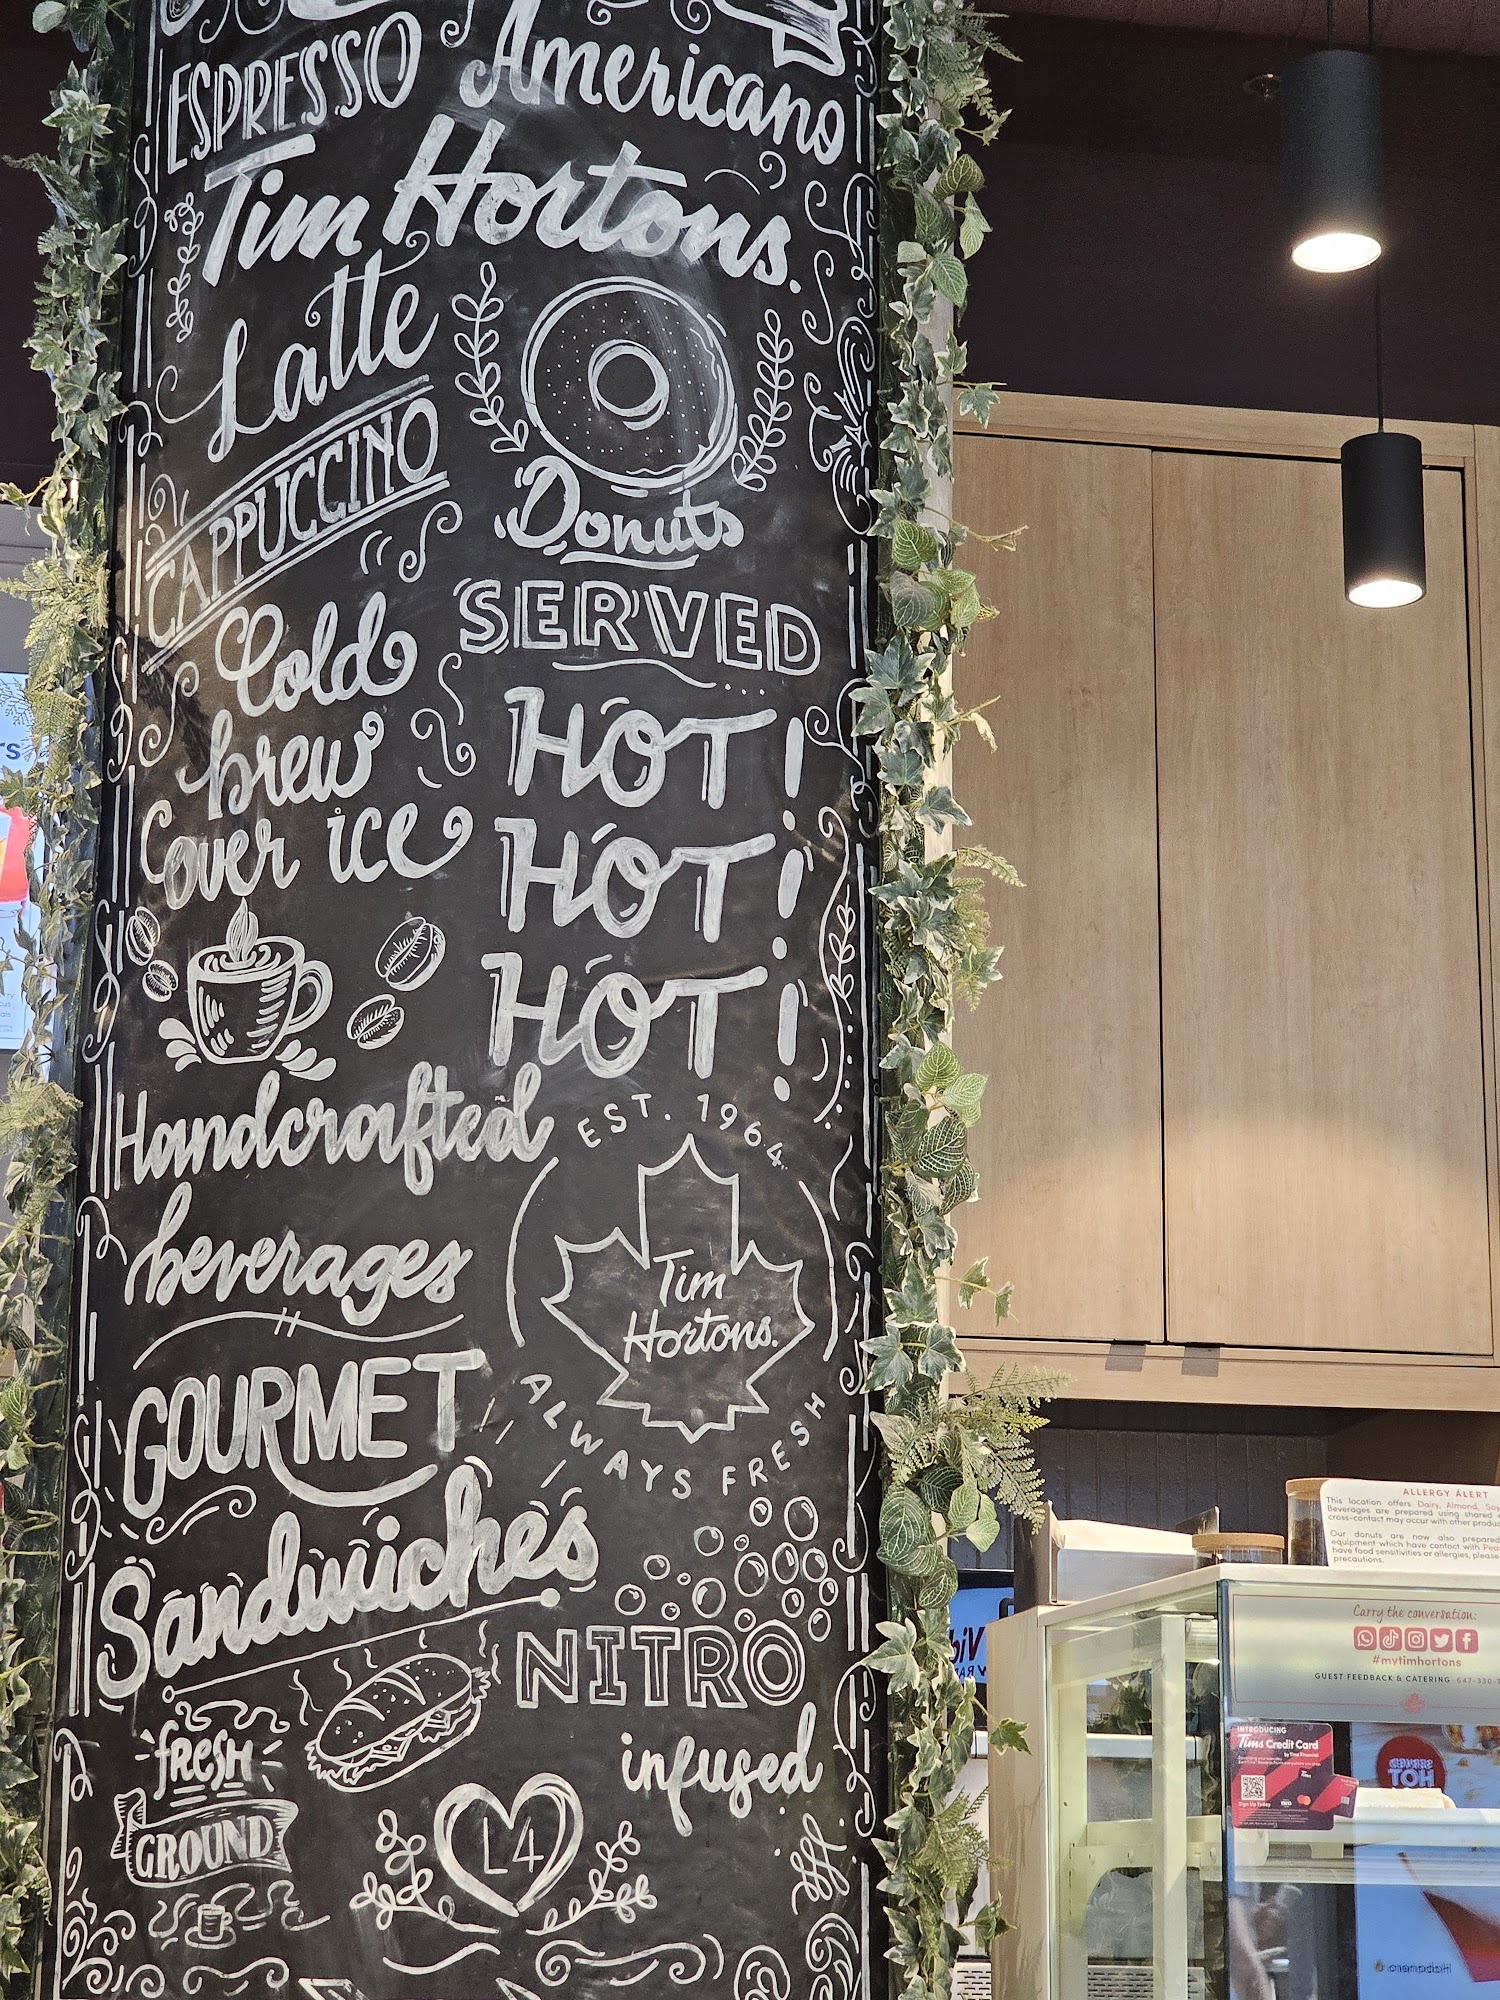 ESPRESSO
Americano
Tim Hortons.
Latte
CAPPUCCINO
Donuts
SERVED
HOT!
HOT!
HOT!
Cold
brew
over ice
Handcrafted
beverages
EST. 1964
Tim
Hortons.
ALWAYS FRESH
GOURMET
Sandwiches
NITRO
infused
fResH
GROUND
L4
ALLERGY ALERT
This location offers Dairy, Almond, Soy
Beverages are prepared using shared
cross-contact may occur with other produc
Our donuts are now also prepared
equipment which have contact with Pea
have food sensitivities or allergies, please
precautions.
Carry the conversation:
#mytimhortons
GUEST FEEDBACK & CATERING 647-330-
INTRODUCING
Tims Credit Card
by Tims Financial
Sign Up Today
HOT